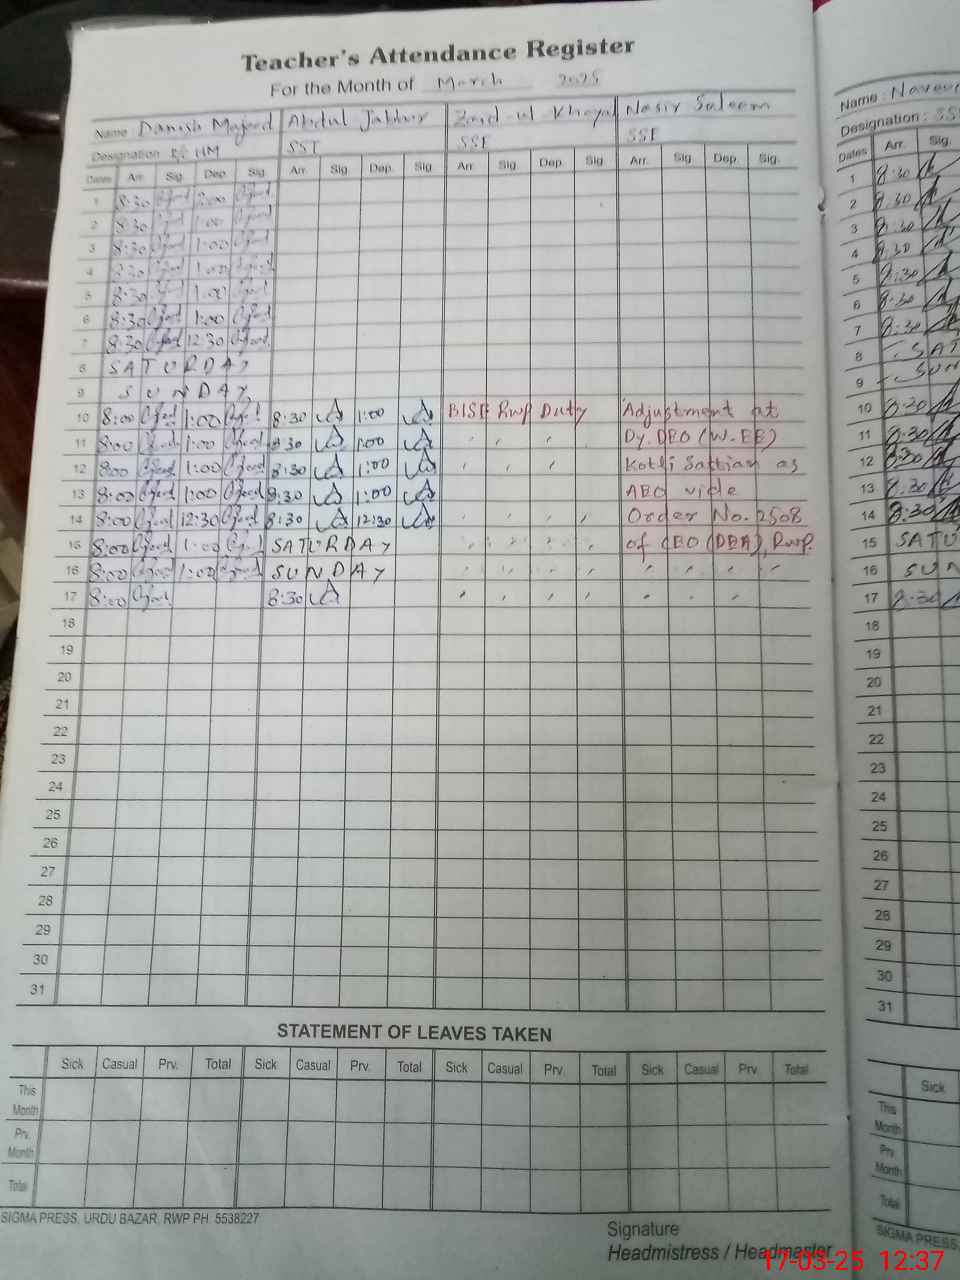 Teacher's Attendance Register
For the Month of March 2025
Name : Danish Majeed Abdul Jabbar Zand ul Khayal Nasir Saleem
Designation HM SST SSE SSE
Dates Arr. Sig. Dep. Sig. Arr. Sig. Dep. Sig. Arr. Sig. Dep. Sig. Arr. Sig. Dep. Sig.
1 8:30
2 8:30 1:00
3 8:30 1:00
4 8:30 1:00
5 8:30 1:00
6 8:30 1:00
7 8:30 12:30
8 SATURDAY
9 SUNDAY
10 8:00 1:00 8:30 1:00 BISE Rwp Duty Adjustment at
11 8:00 1:00 8:30 1:00 Dy. DEO (W-EE)
12 8:00 1:00 8:30 1:00 Kotli Sattian as
13 8:00 1:00 8:30 1:00 AEO vide
14 8:00 12:30 8:30 12:30 Order No. 2508
15 8:00 1:00 SATURDAY of CEO (DEA), Rwp.
16 8:00 1:00 SUNDAY
17 8:00 8:30
18
19
20
21
22
23
24
25
26
27
28
29
30
31
STATEMENT OF LEAVES TAKEN
Sick Casual Prv. Total Sick Casual Prv. Total Sick Casual Prv. Total Sick Casual Prv. Total
This Month
Prv. Month
Total
SIGMA PRESS, URDU BAZAR, RWP PH: 5538227
Signature
Headmistress / Headmaster
Name :
Designation :
Dates Arr. Sig.
1 8:30
2 8:30
3 8:30
4 8:30
5 8:30
6 8:30
7 8:30
8 SAT
9 SUN
10 8:30
11 8:30
12 8:30
13 8:30
14 8:30
15 SATU
16 SUN
17 8:30
18
19
20
21
22
23
24
25
26
27
28
29
30
31
Sick
This Month
Prv. Month
Total
SIGMA PRESS,
17-03-25 12:37